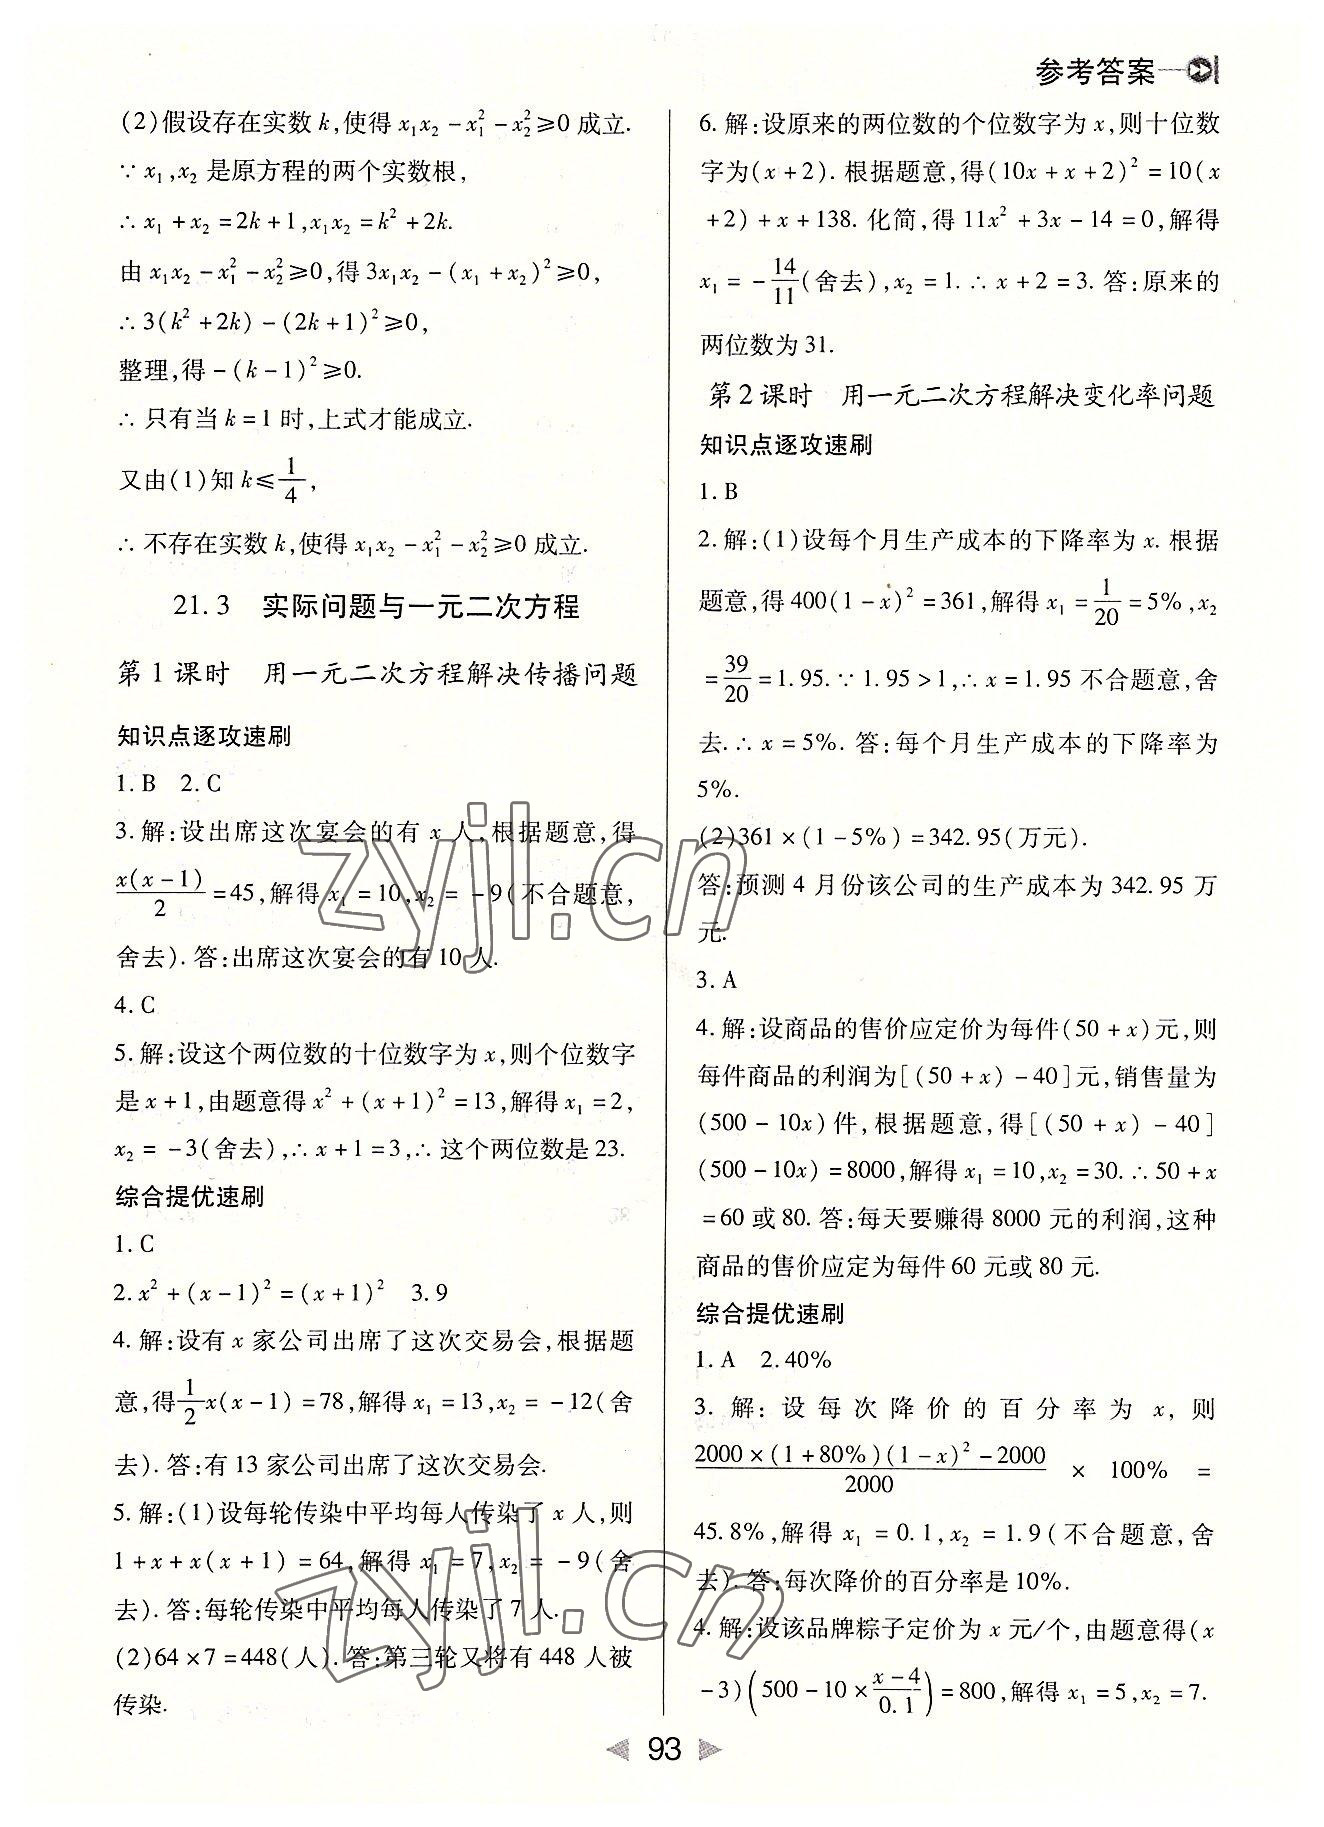 参考答案
(2)假设存在实数 k,使得 x₁x₂－x₁²－x₂²≥0 成立.
∵ x₁,x₂ 是原方程的两个实数根,
∴ x₁＋x₂＝2k＋1,x₁x₂＝k²＋2k.
由 x₁x₂－x₁²－x₂²≥0,得 3x₁x₂－(x₁＋x₂)²≥0,
∴ 3(k²＋2k)－(2k＋1)²≥0,
整理,得－(k－1)²≥0.
∴ 只有当 k＝1 时,上式才能成立.
又由(1)知 k≤1/4,
∴ 不存在实数 k,使得 x₁x₂－x₁²－x₂²≥0 成立.
21.3 实际问题与一元二次方程
第 1 课时 用一元二次方程解决传播问题
知识点逐攻速刷
1. B 2. C
3. 解:设出席这次宴会的有 x 人,根据题意,得
x(x－1)/2＝45,解得 x₁＝10,x₂＝－9(不合题意,
舍去). 答:出席这次宴会的有 10 人.
4. C
5. 解:设这个两位数的十位数字为 x,则个位数字
是 x＋1,由题意得 x²＋(x＋1)²＝13,解得 x₁＝2,
x₂＝－3(舍去),∴ x＋1＝3,∴ 这个两位数是 23.
综合提优速刷
1. C
2. x²＋(x－1)²＝(x＋1)² 3. 9
4. 解:设有 x 家公司出席了这次交易会,根据题
意,得1/2x(x－1)＝78,解得 x₁＝13,x₂＝－12(舍
去). 答:有 13 家公司出席了这次交易会.
5. 解:(1)设每轮传染中平均每人传染了 x 人,则
1＋x＋x(x＋1)＝64,解得 x₁＝7,x₂＝－9(舍
去). 答:每轮传染中平均每人传染了 7 人.
(2)64×7＝448(人). 答:第三轮又将有 448 人被
传染.
6. 解:设原来的两位数的个位数字为 x,则十位数
字为(x＋2). 根据题意,得(10x＋x＋2)²＝10(x
＋2)＋x＋138. 化简,得 11x²＋3x－14＝0,解得
x₁＝－14/11(舍去),x₂＝1. ∴ x＋2＝3. 答:原来的
两位数为 31.
第 2 课时 用一元二次方程解决变化率问题
知识点逐攻速刷
1. B
2. 解:(1)设每个月生产成本的下降率为 x. 根据
题意,得 400(1－x)²＝361,解得 x₁＝1/20＝5%,x₂
＝39/20＝1.95. ∵ 1.95＞1,∴ x＝1.95 不合题意,舍
去. ∴ x＝5%. 答:每个月生产成本的下降率为
5%.
(2)361×(1－5%)＝342.95(万元).
答:预测 4 月份该公司的生产成本为 342.95 万
元.
3. A
4. 解:设商品的售价应定价为每件(50＋x)元,则
每件商品的利润为[(50＋x)－40]元,销售量为
(500－10x)件,根据题意,得[(50＋x)－40]
(500－10x)＝8000,解得 x₁＝10,x₂＝30. ∴ 50＋x
＝60 或 80. 答:每天要赚得 8000 元的利润,这种
商品的售价应定为每件 60 元或 80 元.
综合提优速刷
1. A 2. 40%
3. 解:设每次降价的百分率为 x,则
2000×(1＋80%)(1－x)²－2000/2000 × 100% ＝
45.8%,解得 x₁＝0.1,x₂＝1.9(不合题意,舍
去). 答:每次降价的百分率是 10%.
4. 解:设该品牌粽子定价为 x 元/个,由题意得(x
－3)(500－10×x－4/0.1)＝800,解得 x₁＝5,x₂＝7.
93
zyjl.cn
zyjl.cn